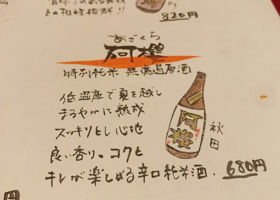 との相性抜群!!
820円
あざくら
阿櫻
特別純米 無濾過原酒
低温庫で夏を越し
まろやかに熟成
スッキリとし心地
良い香り。コクと
キレが楽しめる辛口純米酒.
680円
阿櫻
秋田
円